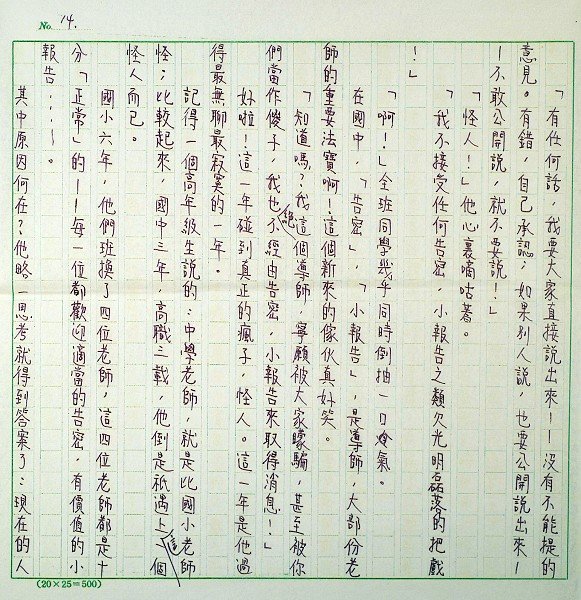 No. 14.
「有任何話，我要大家直接說出來！——沒有不能提的
意見。有錯，自己承認；如果別人說，也要公開說出來！
——不敢公開說，就不要說！」
「怪人！」他心裏嘀咕著。
「我不接受任何告密，小報告之類欠光明磊落的把戲
！」
「啊！」全班同學幾乎同時倒抽一口冷氣。
在國中，「告密」，「小報告」，是導師，大部份老
師的重要法寶啊！這個新來的傢伙真好笑。
「知道嗎？我這個導師，寧願被大家矇騙，甚至被你
們當作傻子，我也絕不經由告密，小報告來取得消息！」
好啦！這一年碰到真正的瘋子，怪人。這一年是他過
得最無聊最寂寞的一年。
記得一個高年級生說的：中學老師，就是比國小老師
怪；比較起來，國中三年，高職三載，他倒是祇遇上這個
怪人而已。
國小六年，他們班換了四位老師，這四位老師都是十
分「正常」的——每一位都歡迎適當的告密，有價值的小
報告……。
其中原因何在？他略一思考就得到答案了：現在的人
(20×25=500)